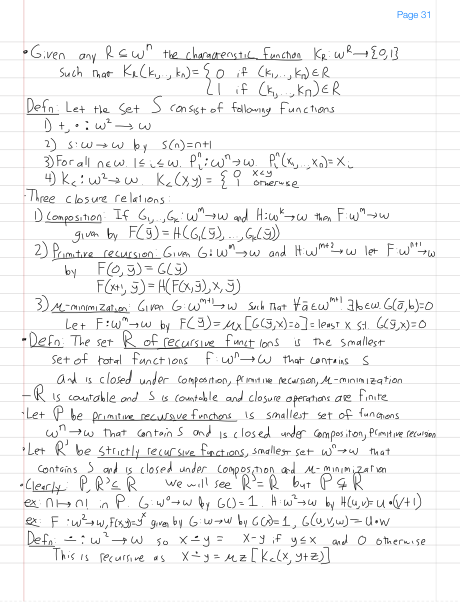 Page 31
• Given any R ⊆ ω^n the characteristic function K_R: ω^R → {0,1}
such that K_R(k_1,..., k_n) = { 0 if (k_1,..., k_n) ∈ R
1 if (k_1,..., k_n) ∈ R
Defn: Let the set S consist of following functions
1) +, · : ω² → ω
2) s: ω → ω by s(n)=n+1
3) For all n∈ω. 1≤i≤ω. P_i^n: ω^n → ω. P_i^n(x_1,..., x_n) = x_i
4) K_<: ω² → ω. K_<(x,y) = { 0 x<y
1 otherwise
· Three closure relations:
1) Composition: If G_1,..., G_k: ω^m → ω and H: ω^k → ω then F: ω^m → ω
given by F(ȳ) = H(G_1(ȳ),..., G_k(ȳ))
2) Primitive recursion: Given G: ω^m → ω and H: ω^{m+2} → ω let F: ω^{n+1} → ω
by F(0, ȳ) = G(ȳ)
F(x+1, ȳ) = H(F(x,ȳ), x, ȳ)
3) μ-minimization: Given G: ω^{m+1} → ω such that ∀ā∈ω^{m+1} ∃b∈ω. G(ā,b)=0
Let F: ω^m → ω by F(ȳ) = μx[G(ȳ,x)=0] = least x st. G(ȳ,x)=0
• Defn: The set R of recursive functions is the smallest
set of total functions f: ω^n → ω that contains S
and is closed under composition, primitive recursion, μ-minimization
— R is countable and S is countable and closure operations are finite
· Let P be primitive recursive functions is smallest set of functions
ω^n → ω that contain S and is closed under composition, primitive recursion
· Let R' be strictly recursive functions, smallest set ω^n → ω that
contains S and is closed under composition and μ-minimization
• Clearly: P, R' ⊆ R We will see R' = R but P ⊊ R
ex: n ↦ n! in P. G: ω⁰ → ω by G() = 1. H: ω² → ω by H(u,v) = u·(v+1)
ex: F: ω² → ω, F(x,y)=y^x given by G: ω → ω by G(x)=1, G(u,v,w) = u·w
Defn ∸ : ω² → ω so x ∸ y = x-y if y≤x and 0 otherwise
This is recursive as x ∸ y = μz[K_<(x, y+z)]